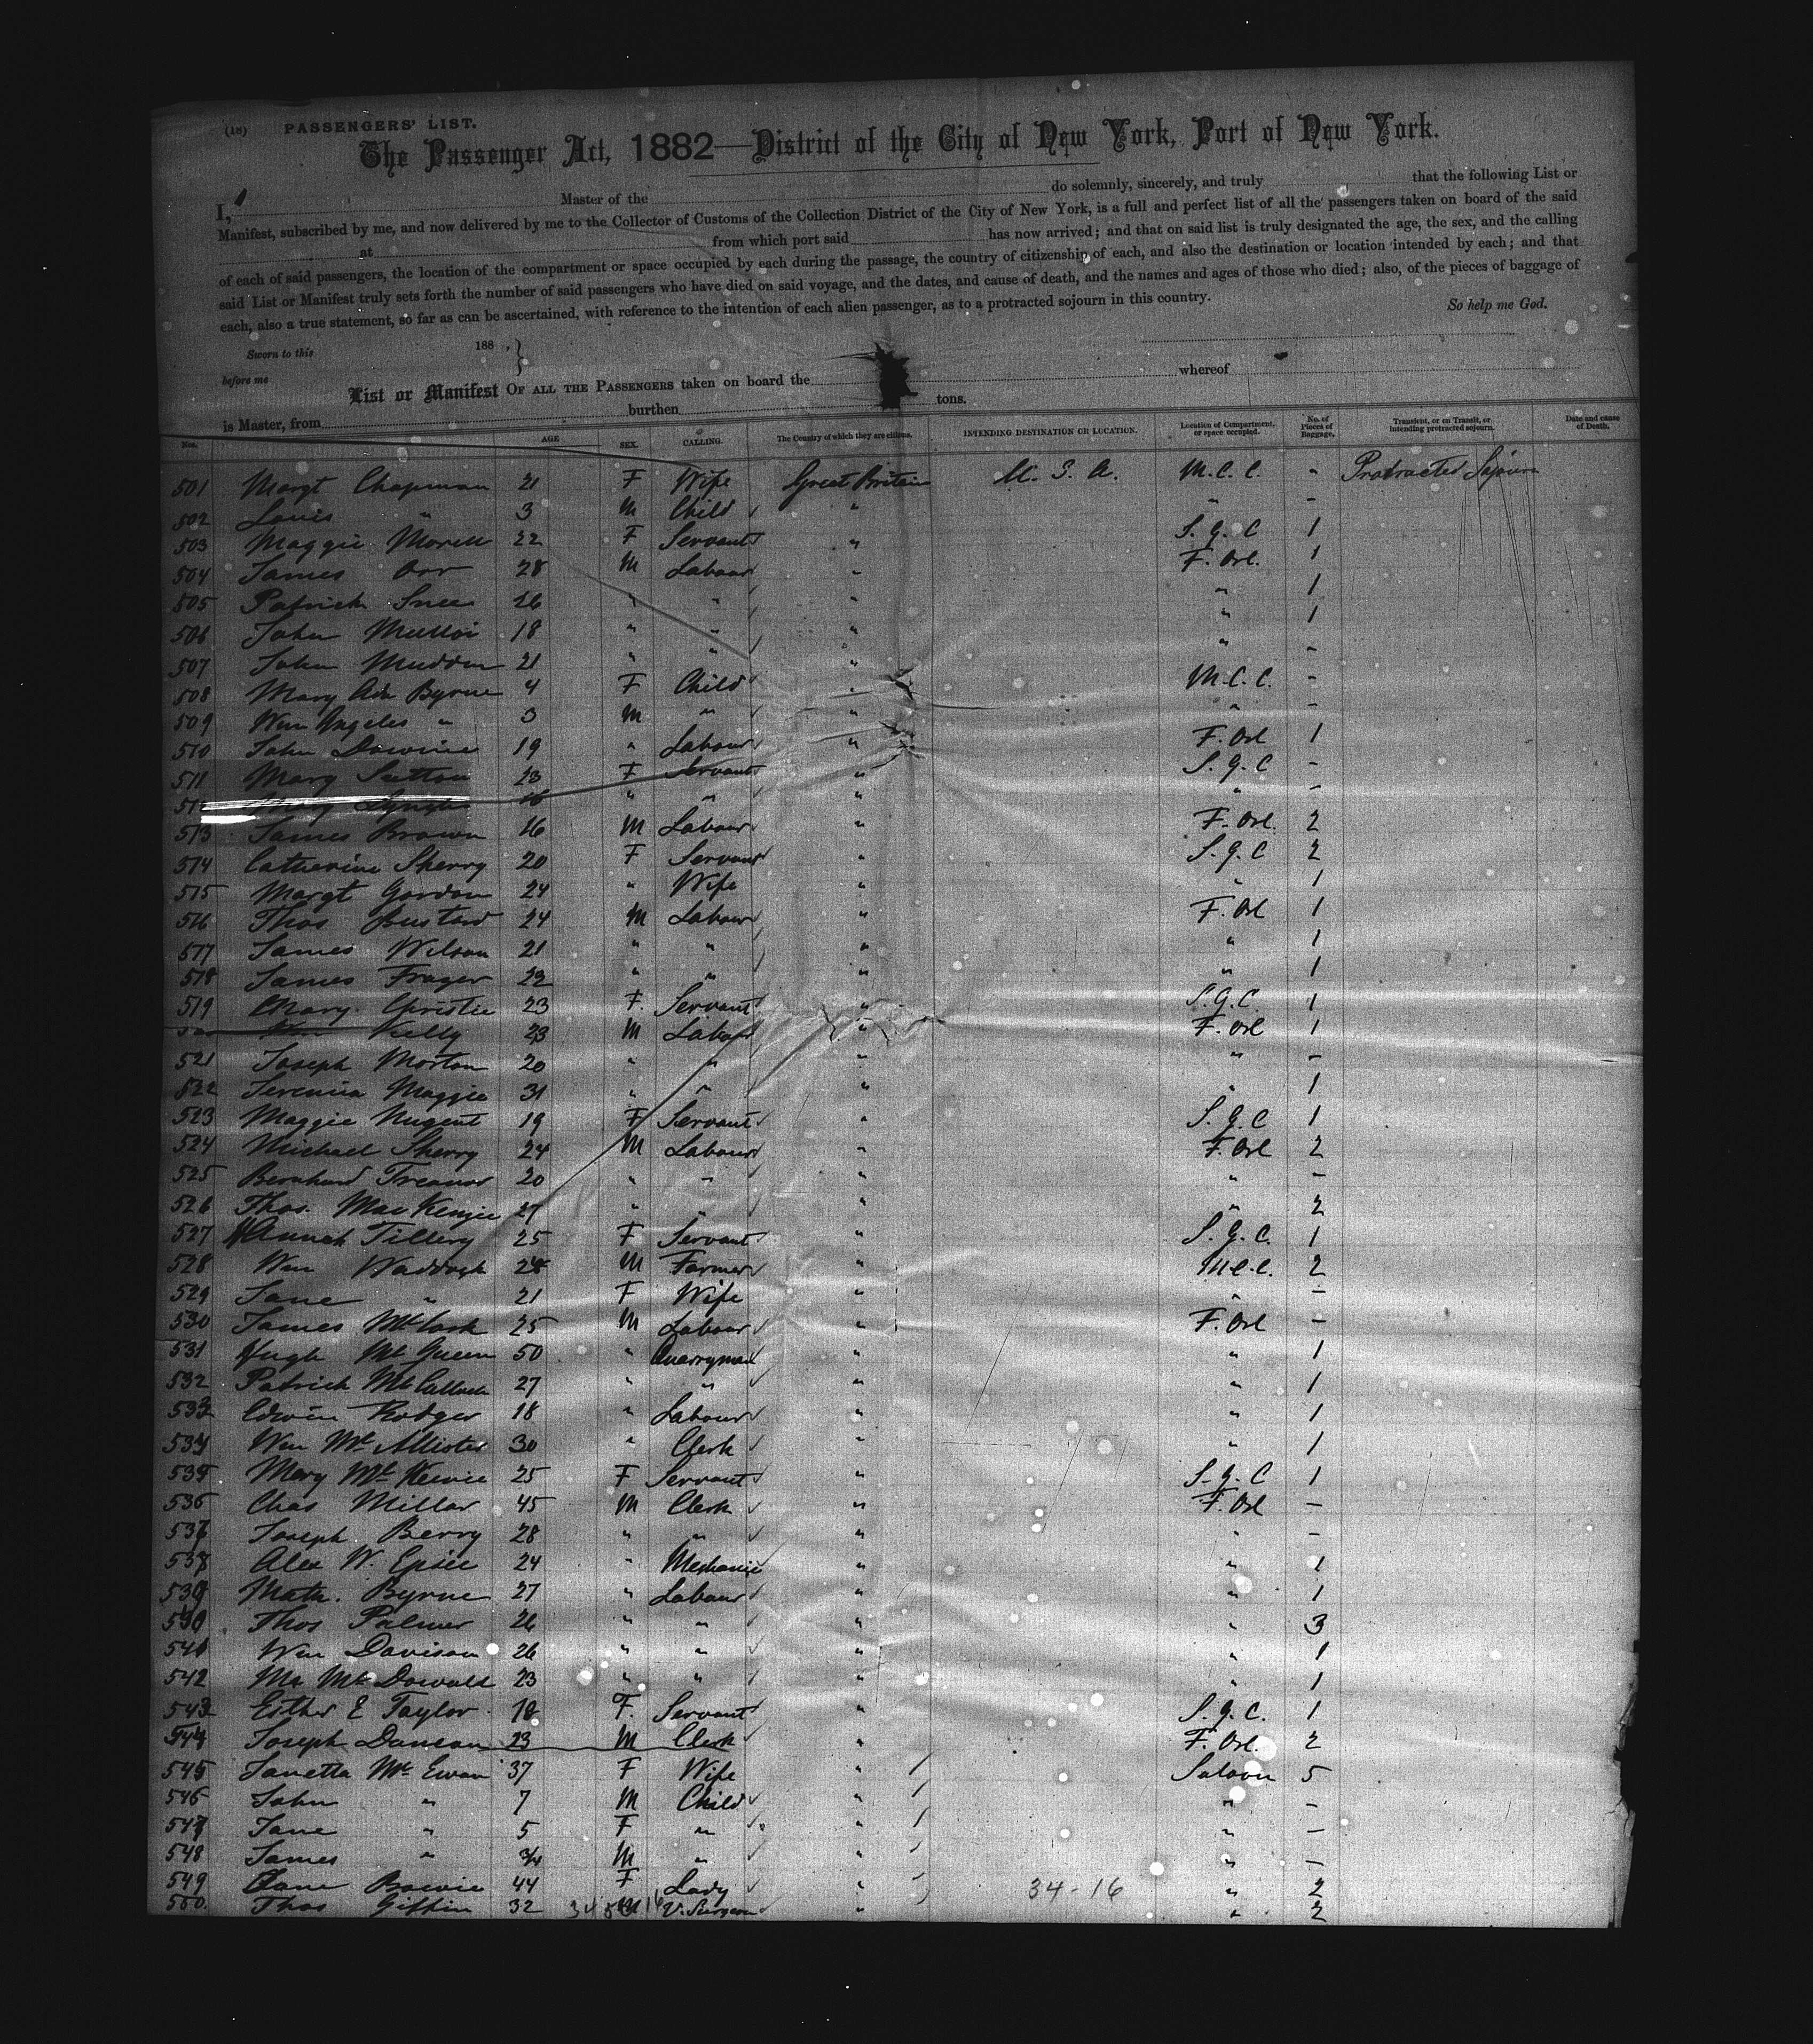 (18) PASSENGERS' LIST.
The Passenger Act, 1882—District of the City of New York, Port of New York.
I, Master of the do solemnly, sincerely, and truly that the following List or
Manifest, subscribed by me, and now delivered by me to the Collector of Customs of the Collection District of the City of New York, is a full and perfect list of all the passengers taken on board of the said
at from which port said has now arrived; and that on said list is truly designated the age, the sex, and the calling
of each of said passengers, the location of the compartment or space occupied by each during the passage, the country of citizenship of each, and also the destination or location intended by each; and that
said List or Manifest truly sets forth the number of said passengers who have died on said voyage, and the dates, and cause of death, and the names and ages of those who died; also, of the pieces of baggage of
each, also a true statement, so far as can be ascertained, with reference to the intention of each alien passenger, as to a protracted sojourn in this country. So help me God.
Sworn to this 188 , }
before me
List or Manifest OF ALL THE PASSENGERS taken on board the whereof
is Master, from burthen tons.
Nos. AGE SEX. CALLING. The Country of which they are citizens. INTENDING DESTINATION OR LOCATION. Location of Compartment, or space occupied. No. of Pieces of Baggage. Transient, or en Transit, or intending protracted sojourn. Date and cause of Death.
501 Margt Chapman 21 F Wife Great Britain U. S. A. M.C.C. " Protracted Sojourn
502 Louis " 3 M Child " " -
503 Maggie Morell 22 F Servant " S.G.C 1
504 James Orr 28 M Labour " F. Orl. 1
505 Patrick Snee 26 " " " " 1
506 John 18 " " " " 1
507 John Muddon 21 " " " " -
508 Mary Ann Byrne 4 F Child " M.C.C. -
509 Wm Angeles " 3 M " " " -
510 John 19 " Labour " F. Orl 1
511 Mary Sutton 23 F Servant " S.G.C -
512 Mary 16 " " " " -
513 James Brown 16 M Labour " F. Orl. 2
514 Catherine Sherry 20 F Servant " S.G.C 2
515 Margt Gordon 24 " Wife " " 1
516 Thos Bustard 24 M Labour " F. Orl 1
517 James Wilson 21 " " " " 1
518 James Frazer 22 " " " " 1
519 Mary Christie 23 F. Servant " S.G.C. 1
Wm Kelly 23 M Labour " F. Orl 1
521 Joseph Morton 20 " " " " -
522 Maggie 31 " " " " 1
523 Maggie Nugent 19 F Servant " S.G.C 1
524 Michael Sherry 24 M Labour " F. Orl 2
525 Bernhard Treanor 20 " " " " -
526 Thos. MacKenzie 27 " " " " 2
527 Hannah Tillery 25 F Servant " S.G.C. 1
528 Wm Waddock 28 M Farmer " M.C.C. 2
529 Jane " 21 F Wife " " -
530 James 25 M Labour " F. Orl -
531 Hugh 50 " Quarryman " " 1
532 Patrick 27 " " " " 1
533 Edwin Rodger 18 " Labour " " 1
534 Wm McAllister 30 " Clerk " " 1
535 Mary 25 F Servant " S.G.C 1
536 Chas Millar 45 M Clerk " F. Orl -
537 Joseph Berry 28 " " " " -
538 Alex W. 24 " Mechanic " " 1
539 Math. Byrne 27 " Labour " " 1
540 Thos Palmer 26 " " " " 3
541 Wm Davison 26 " " " " 1
542 23 " " " " 1
543 Esther E Taylor 18 F. Servant " S.G.C. 1
544 Joseph Duncan 23 M Clerk " F. Orl. 2
545 Janetta McEwan 37 F Wife " Saloon 5
546 John " 7 M Child " " -
547 Jane " 5 F " " " -
548 James " 3/4 M " " " -
549 Jane Bowie 44 F Lady " 34-16 " 2
550. Thos Giffin 32 M V. Surgeon " " 2